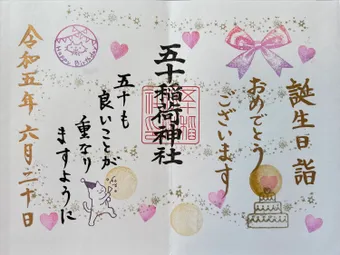 誕生日詣
おめでとう
ございます
五十稲荷神社
五十も
良いことが
重なり
ますように
令和五年 六月二十日
Happy Birthday